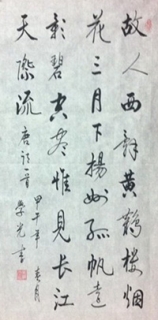 故人西辞黄鹤楼烟
花三月下扬州孤帆远
影碧空尽惟见长江
天际流 唐诗一首
甲午年 春月
学光书